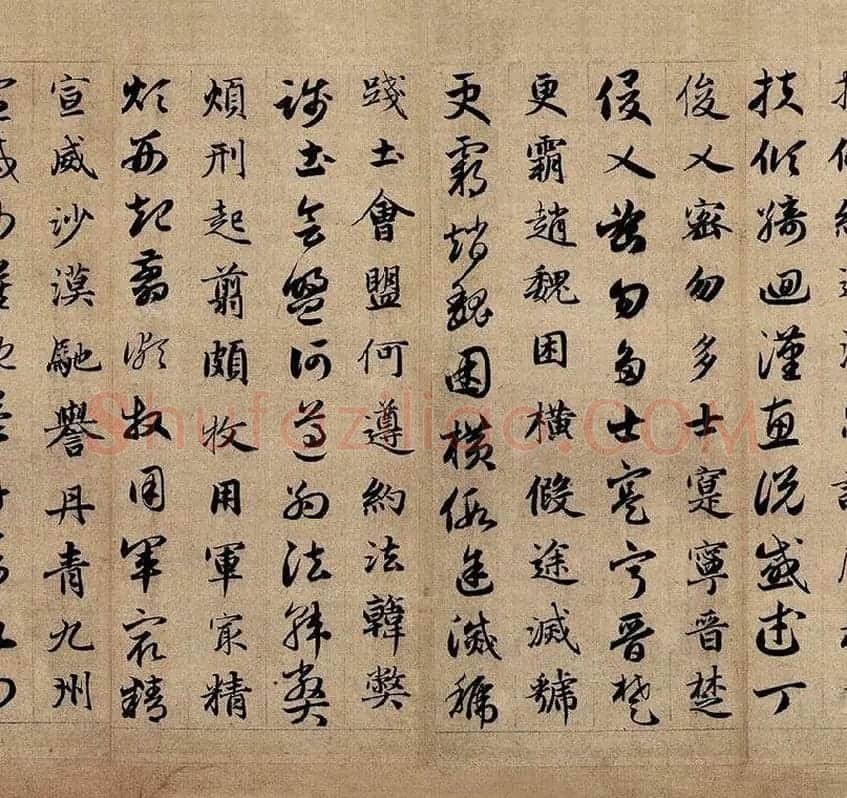 扶傾綺迴漢惠説感武丁
俊乂密勿多士寔寧晉楚
俊乂密勿多士寔寧晉楚
更霸趙魏困橫假途滅虢
更霸趙魏困橫假途滅虢
踐土會盟何遵約法韓弊
踐土會盟何遵約法韓弊
煩刑起翦頗牧用軍最精
煩刑起翦頗牧用軍最精
宣威沙漠馳譽丹青九州